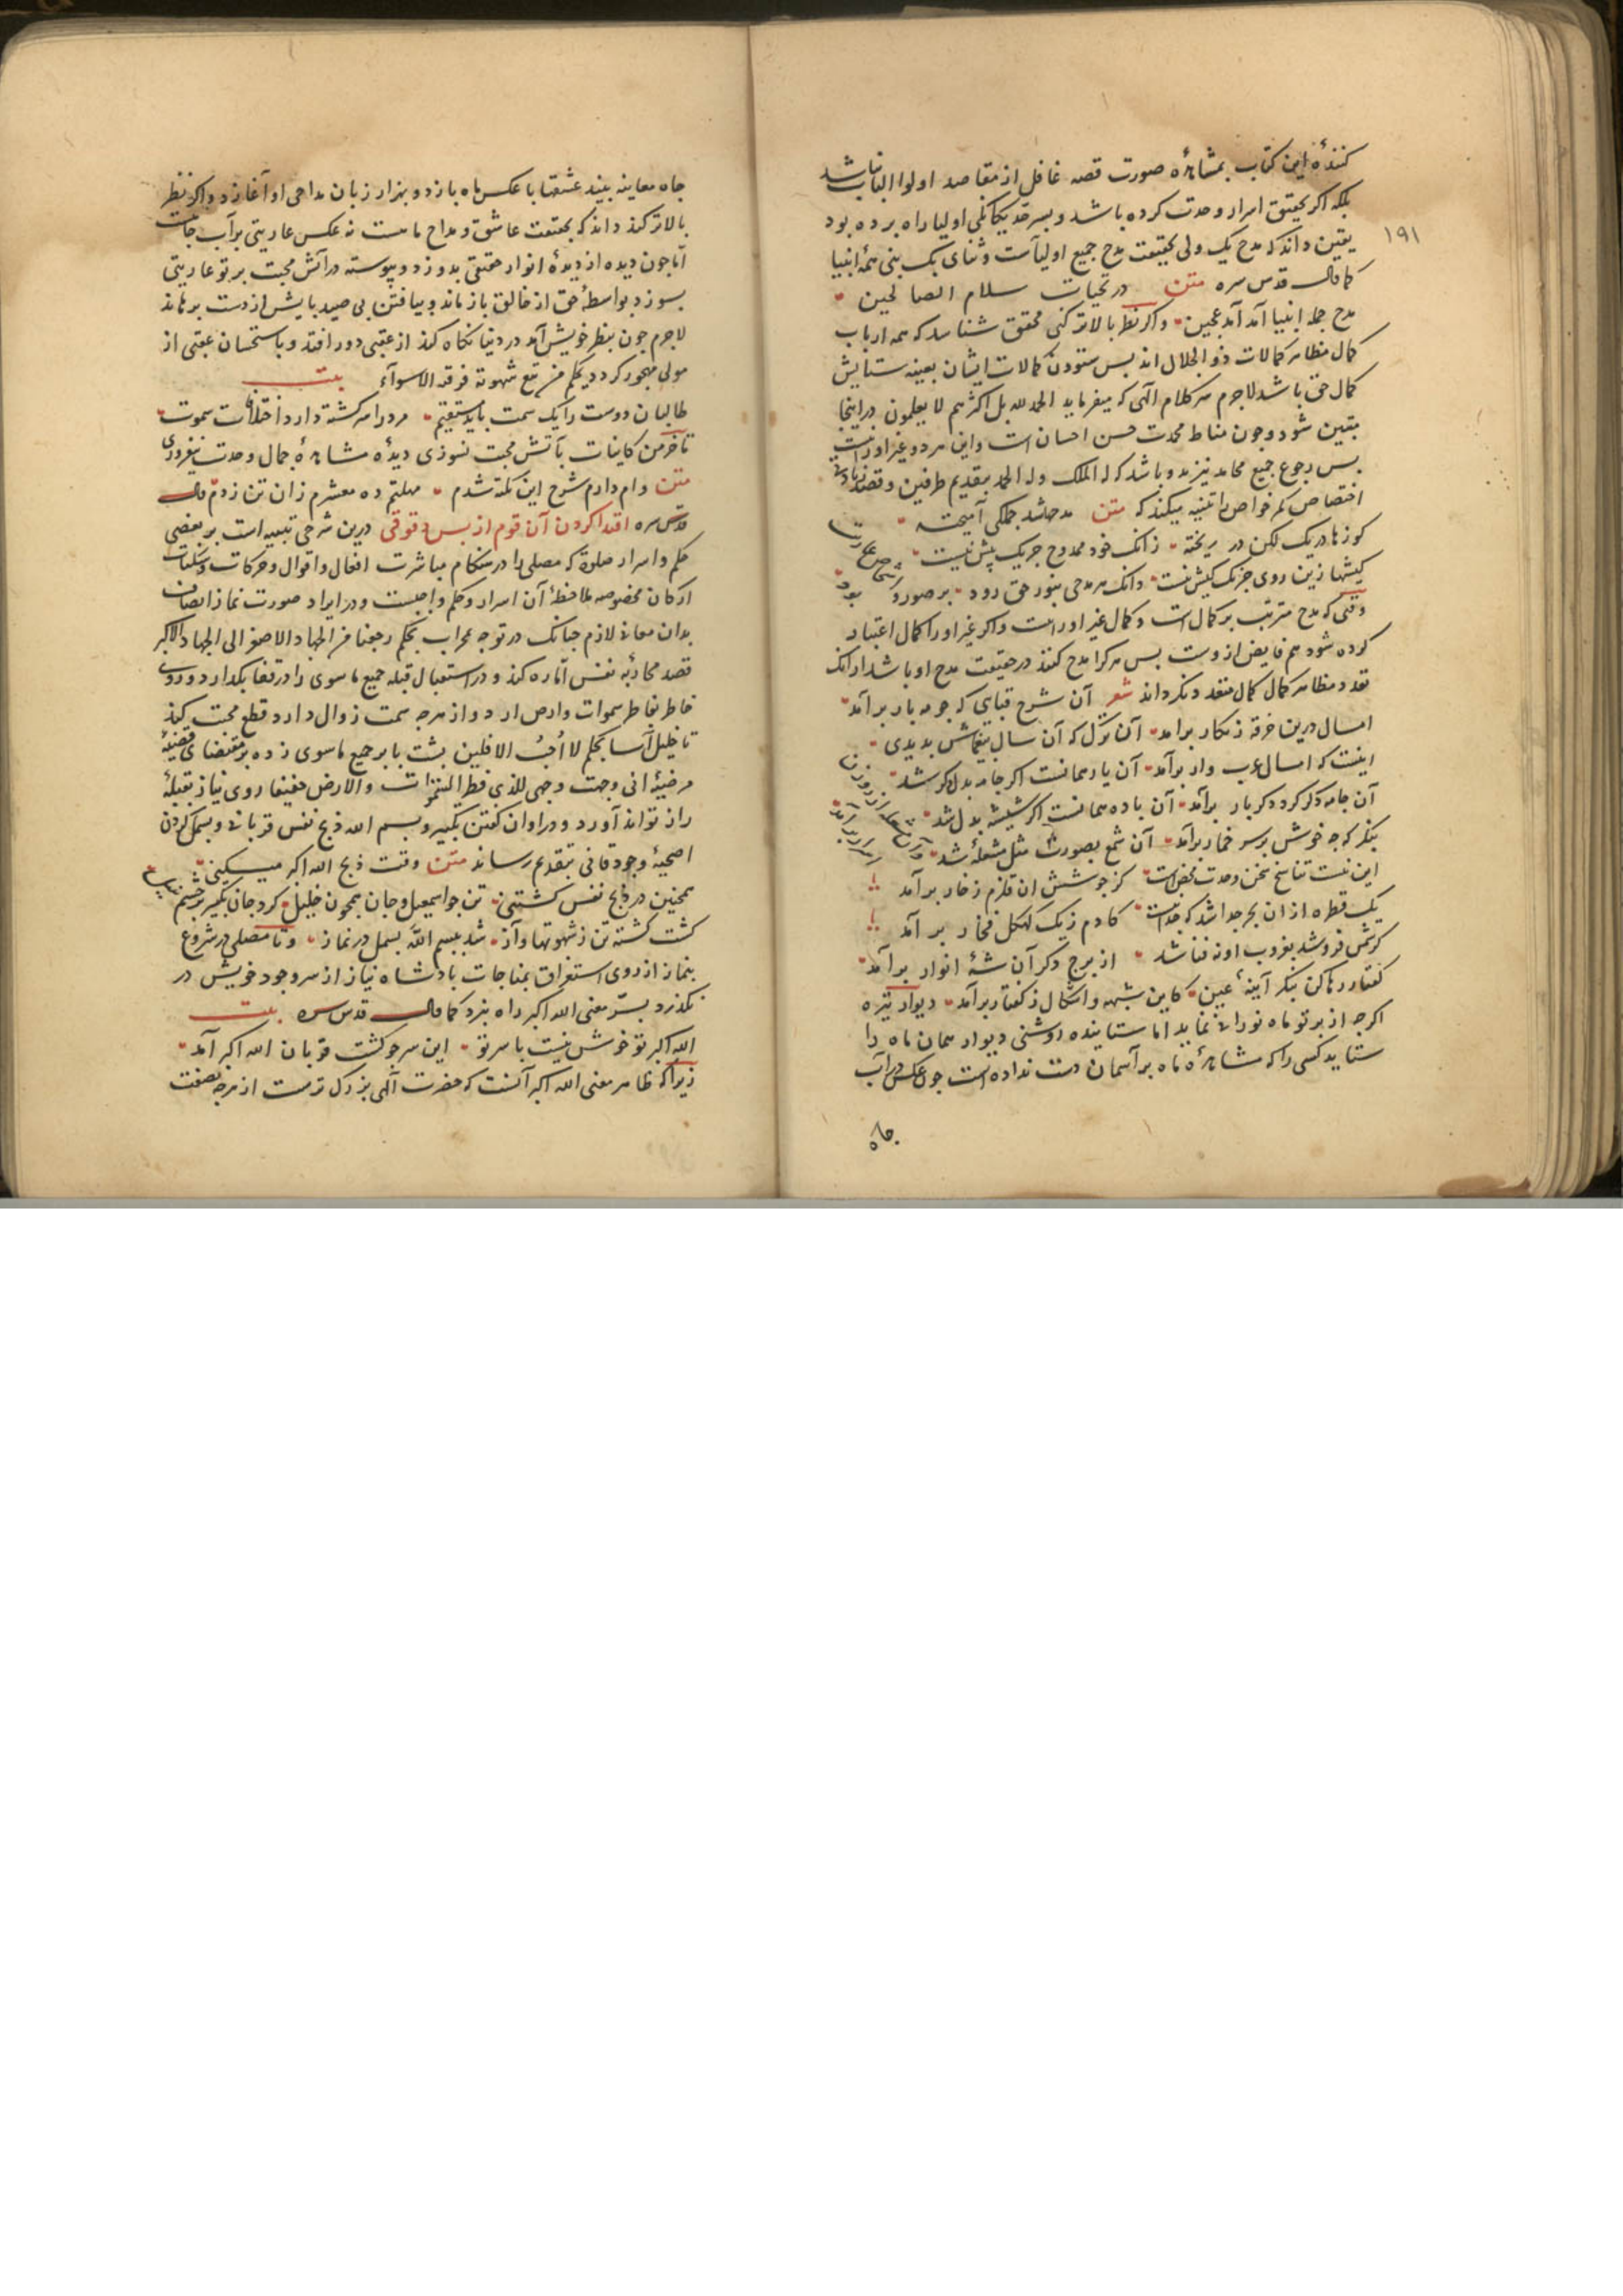 کنندهٔ این کتاب بمشاهدهٔ صورت قصه غافل از مقاصد اولوا الالباب نباشد
بلکه اگر بحقیق اسرار وحدت کرده باشد و بسر حد یکانکی اولیا راه برده بود
۱۹۱
یقین داند که مدح یک ولی بحقیقت مدح جمیع اولیآست و ثنای یک بنی همهٔ انبیا
کما قال قدس سره متن در تحیات سلام الصالحین
مدح جمله انبیا آمد عجین واکر نظر بالاتر کنی محقق شناسد که همه ارباب
کمال مظاهر کمالات ذو الجلال اند بس ستودن کمالات ایشان بعینه ستایش
کمال حق باشد لاجرم سر کلام الهی که میفرماید الحمد لله بل اکثرهم لا یعلمون در اینجا
متقین شود و چون مناط محمدت حسن احسان است و این هر دو غیر او را نیست
بس رجوع جمیع محامد نیز بدو باشد که له الملک وله الحمد بتقدیم طرفین
اختصاص کمر خواص را تنبیه میکند که متن مدحها شد جملکی آمیخته
کوزها در یک لکن در ریخته زانک خود ممدوح جز یک پیش نیست
کیشها زین روی جز یک کیش نیست دانک هر مدحی بنور حق رود بر صور و
وقتی که مدح مترتب بر کمال است و کمال غیر او را نیست واکر غیر او را کمال اعتبار
کرده شود هم فایض از وست بس هر کرا مدح کنند در حقیقت مدح او باشد ازانک
تعدد مظاهر کمال کمال متعدد نکرداند شعر آن شرح قبایی که جو مه بار برآمد
امسال درین خرقهٔ زنکار برآمد آن ترک که آن سال بیغماش بدیدی
اینست که امسال عرب وار برآمد آن یار همانست اکر جامه بدل کر شد
آن جامه دکر کرد و دکر بار برآمد آن باده همانست اکر شیشه بدل شد
بنکر که جه خوش بر سر خمار برآمد آن شمع بصورت مثل مشعله شد
این نیست تناسخ سخن وحدت محض است کز جوشش ان قلزم زخار برآمد
یک قطره ازان بحر جدا شد که جدا نیست کادم ز یک صلصل فخار بر آمد
کر شمس فرو شد بغروب او نه فنا شد از برج دکر آن شهٔ انوار برآمد
کفتار رها کن بنکر آینهٔ عین کاین شبهه و اشکال ز کفتار برآمد دیوار تیره
اکرجه از برتو ماه نورانی نماید اما ستاینده روشنی دیوار همان ماه را
ستاید کسی را که مشاهدهٔ ماه بر آسمان دست نداده است جون عکس در آب
جاه
جاه معاینه بیند عشقها با عکس ماه بازد و بهزار زبان مداحی او آغازد و اکر نظر
بالاتر کند داند که بحقیقت عاشق و مداح ماهست نه عکس عاریتی بر آب جاه
امّا جون دیده از دیدهٔ انوار حقیقی بدوزد و پیوسته در آتش محبت برتو عاریتی
بسوزد بواسطهٔ حق از خالق باز ماند و بیافتن بی صید بایش از دست برهاند
لاجرم جون بنظر خویش آمد در دنیا نکاه کند از عقبی دور افتد و باستحسان عقبی از
مولی مهجور کردد بحکم من تبع شهوته فرقته الاسوآء بیت
طالبان دوست را یک سمت باید مستقیم
تا خرمن کاینات بآتش محبت نسوزی دیدهٔ مشاهدهٔ جمال وحدت نیفروزی
متن وام دارم شرح این نکته شدم مهلتم ده معسرم زان تن زدم قال
قدس سره اقتدا کردن آن قوم از بس دقوقی درین شرحی تنبیه است بر بعضی
حکم و اسرار صلوة که مصلی را در هنکام مباشرت افعال و اقوال و حرکات و سکنات
ارکان مخصوصه ملاحظهٔ آن اسرار و حکم واجبست و در ایراد صورت نماز
بدان معانی لازم جنانک در توجه محراب بحکم رجعنا من الجهاد الاصغر الی الجهاد الاکبر
قصد محاربهٔ نفس امّاره کند و در استقبال قبله جمیع ماسوی را در قفا بکدارد و روی
خاطر بفاطر سموات وارض ارد و از هرجه سمت زوال دارد قطع محبت کند
تا خلیل آسا بحکم لا احُبُ الافلین بشت با بر جمیع ماسوی زده بر مقتضای قضیهٔ
مرضیهٔ انی وجهت وجهی للذی فطر السموات والارض حنیفا روی نیاز بقبلهٔ
راز تواند آورد و در اوان کفتن تکبیر و بسم الله ذبح نفس قربانی و بسمل کردن
اضحیهٔ وجود فانی بتقدیم رساند متن وقت ذبح الله اکبر میکنی
همجنین در ذبح نفس کشتنی تن جو اسمعیل و جان همجون خلیل کرد جان تکبیر بر جسم
کشت کشته تن ز شهوتها و آز شد ببسم الله بسمل در نماز و تا مصلی در شروع
بنماز از روی استغراق بمناجات بادشاه نیاز از سر وجود خویش در
نکذرد بسرّ معنی الله اکبر راه نبرد کما قال قدس سره بیت
الله اکبر تو خوش نیست با سر تو این سر جو کشت قربان الله اکبر آمد
زیرا که ظاهر معنی الله اکبر آنست که حضرت الهی بزرک ترست از هرجه بصفت